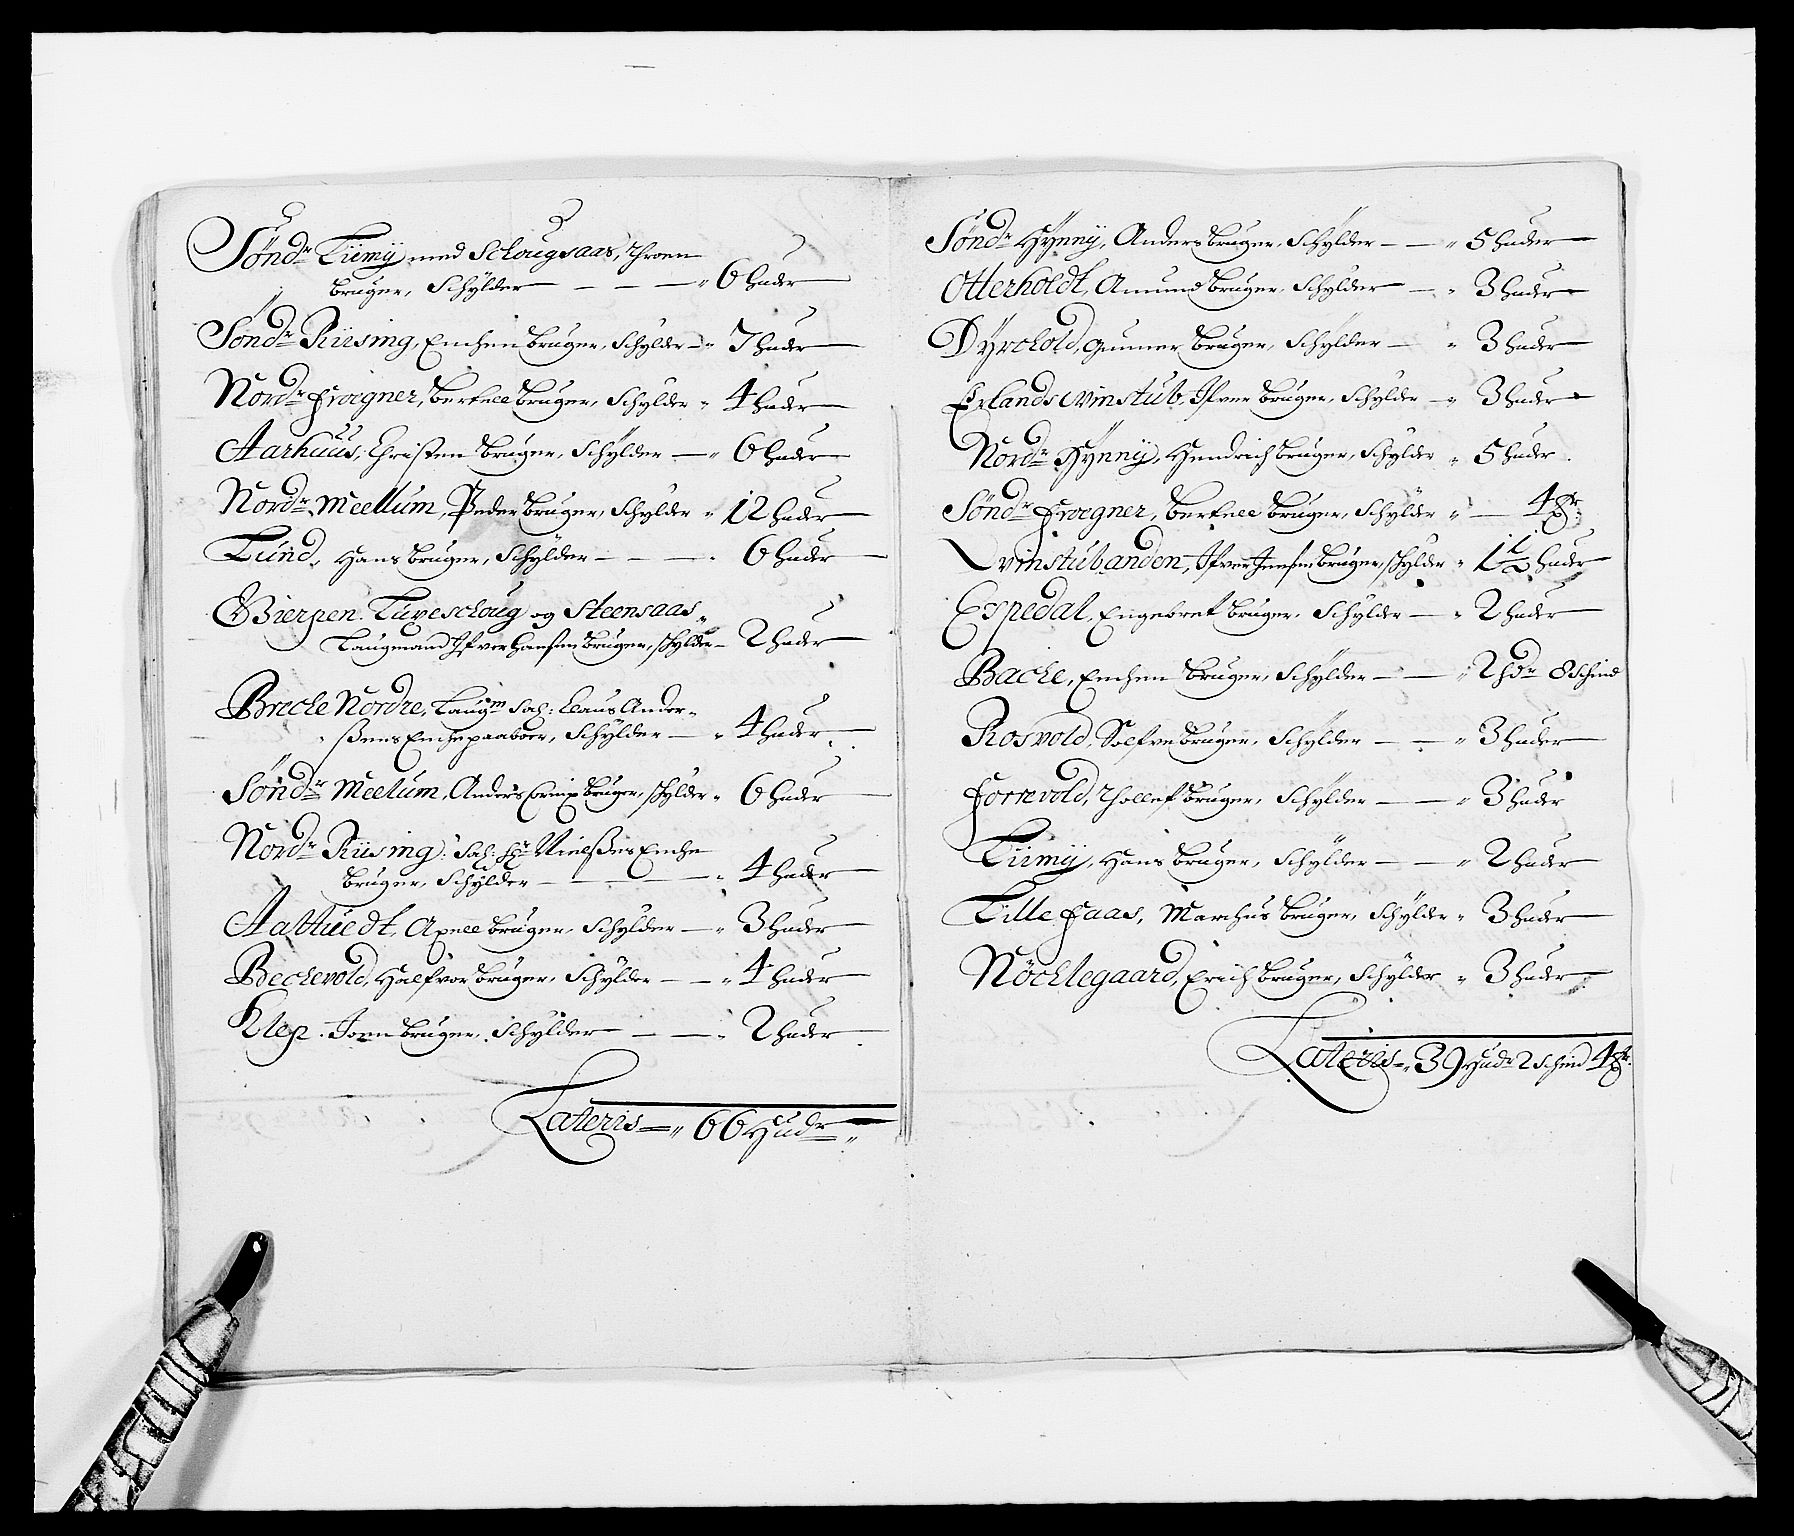 Söndr Liemÿ med Schougsaas, Throen
bruger, Schÿlder — — — „ 6 huder
Söndr Riising, Enchen bruger, Schÿlder — „ 7 huder
Nordr Frogner, bertell bruger, Schÿlder „ 4 huder
Aarhuus, Christen bruger, Schÿlder — „ 6 huder
Nordr Meellum, Peder bruger, Schÿlder „ 12 huder
Lund, Hans bruger, Schÿlder — — — „ 6 huder
Bierpen Luxeschoug og Steensaas,
Laugmand Ifver Hansen bruger, schÿlder — 2 huder
Breche Nordre, Laugm Sal: Claus Ander-
ssens Enche paaboer, Schÿlder — „ 4 huder
Söndr Meelum, Anders bruger, schÿlder „ 6 huder
Nordr Riising, Sal: Hr Nielsses Enche
bruger, Schÿlder — — — „ 4 huder
Aaltuedt, Axell bruger, Schÿlder — „ 3 huder
Bechevold, Halfvor bruger, Schÿlder — — „ 4 huder
Klep, Joen bruger, Schÿlder — — „ 2 huder
Lateris „ 66 Hudr „
Söndr Hÿnnÿ, Anders bruger, Schÿlder — — „ 5 huder
Otterholdt, Amund bruger, Schÿlder — „ 3 huder
Dÿrchold, Gunner bruger, Schÿlder — „ 3 huder
Erlands Qvinstub, Ifver bruger, Schÿlder — „ 3 huder
Nordr Hÿnnÿ, Hendrich bruger, Schÿlder „ 5 huder
Söndr Frogner, bertell bruger, Schÿlder „ — 4
Qvinstubanden, Ifver Jensen bruger, schÿlder „ 1½ huder
Espedal, Engebret bruger, Schÿlder — „ 2 huder
Bache, Enchen bruger, Schÿlder — — „ 2 hdr 8 schind
Rosvold, Solfve bruger, Schÿlder — — „ 3 huder
Forrevold, Thollef bruger, Schÿlder — — „ 3 huder
Liimÿ, Hans bruger, Schÿlder — — „ 2 huder
Lille Faas, Marchus bruger, Schÿlder „ 3 huder
Nöchlegaard, Erich bruger, Schÿlder „ 3 huder
Lateris „ 39 Hudr 2 schind 4